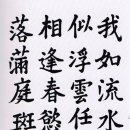 我如流水
似浮雲任
相逢春慾
落滿庭斑